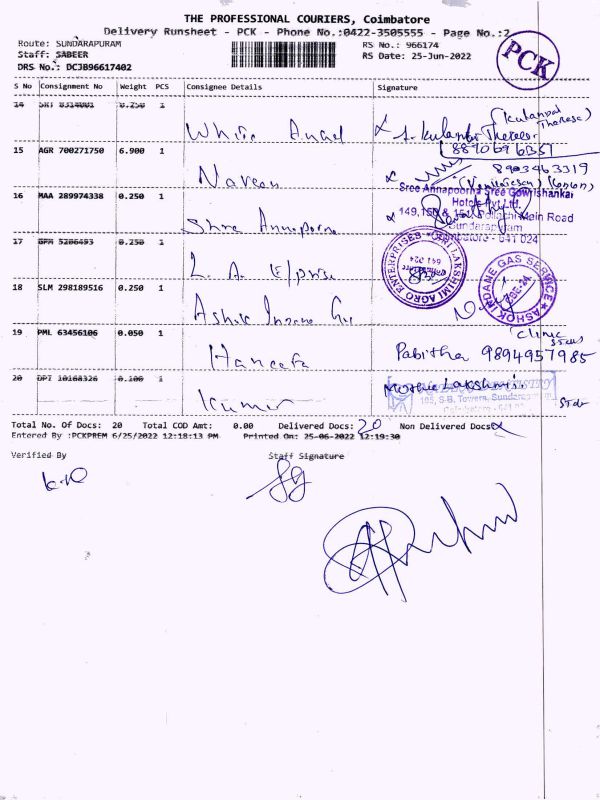 THE PROFESSIONAL COURIERS, Coimbatore
Delivery Runsheet - PCK - Phone No.:0422-3505555 - Page No.:2
Route: SUNDARAPURAM
RS No.: 966174
Staff: SABEER
RS Date: 25-Jun-2022
DRS No.: DCJB96617402
PCK
S No Consignment No Weight PCS Consignee Details Signature
14 0.250 1
White Anad
(Kulanbai Therese)
8890696351
15 AGR 700271750 6.900 1
Naveen
8903463319
16 MAA 289974338 0.250 1
Shre Annaporna
Sree Annapoorna Sree Gowrishankar
Hotels Pvt Ltd.
149,150 & 151, Pollachi Main Road
Sundarapuram
Coimbatore - 641 024
17 GPM 5206493 0.250 1
L. A. E/prise
LAKSHMI AGRO ENTERPRISES
641 024
18 SLM 298189516 0.250 1
Ashok Indane Gas
ASHOK INDANE GAS SERVICE
CBE-24
19 PML 63456106 0.050 1
Haneefa
Clinic
Pabitha 9894957985
20 DPI 10168326 0.100 1
Kumar
Lakshmi
105, S.B. Towers, Sundarapuram
Total No. Of Docs: 20 Total COD Amt: 0.00 Delivered Docs: 20 Non Delivered Docs:
Entered By :PCKPREM 6/25/2022 12:18:13 PM Printed On: 25-06-2022 12:19:30
Verified By Staff Signature